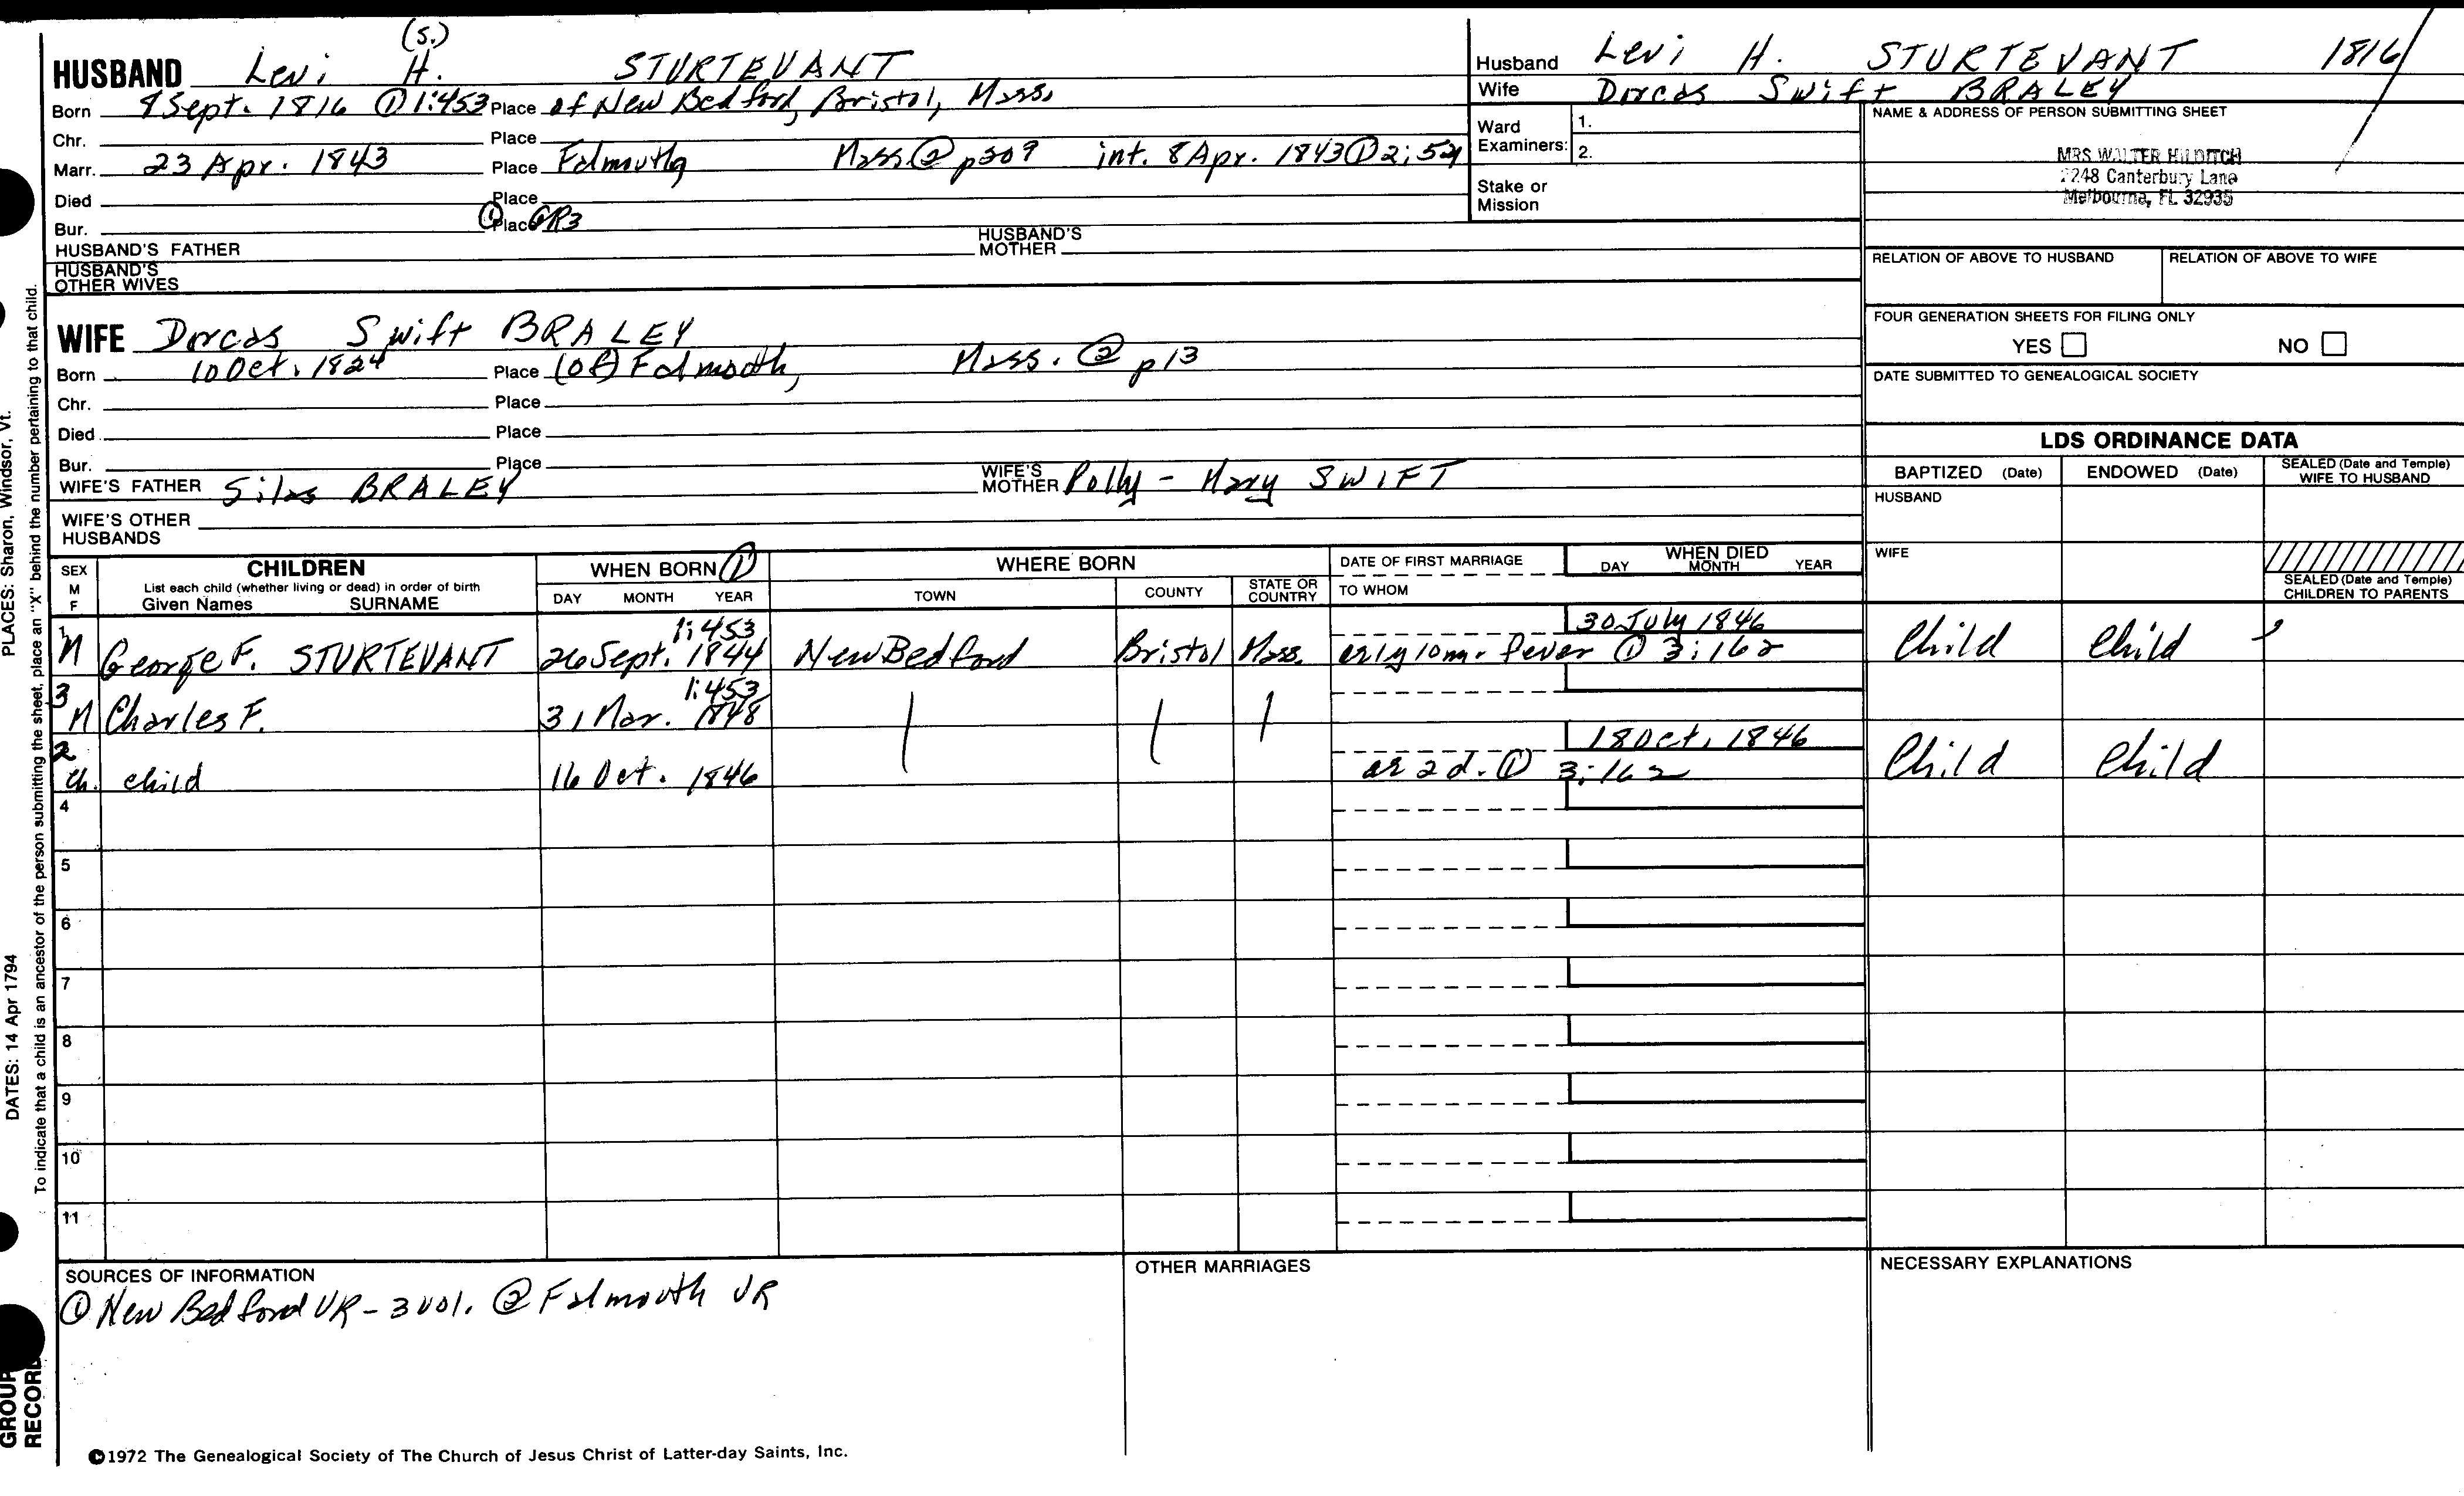 (S.)
HUSBAND Levi H. STURTEVANT
Born 8 Sept. 1816 ① 1:453 Place of New Bedford, Bristol, Mass.
Chr. Place
Marr. 23 Apr. 1843 Place Falmouth Mass. ② p209 int. 8 Apr. 1843 ① 2:52
Died Place
Bur. ① Place GR3
HUSBAND'S FATHER HUSBAND'S MOTHER
HUSBAND'S OTHER WIVES
Husband Levi H. STURTEVANT 1816
Wife Dorcas Swift BRALEY
Ward Examiners: 1.
2.
Stake or Mission
NAME & ADDRESS OF PERSON SUBMITTING SHEET
MRS WALTER HILDITCH
2248 Canterbury Lane
Melbourne, FL 32935
RELATION OF ABOVE TO HUSBAND RELATION OF ABOVE TO WIFE
FOUR GENERATION SHEETS FOR FILING ONLY
YES NO
DATE SUBMITTED TO GENEALOGICAL SOCIETY
WIFE Dorcas Swift BRALEY
Born 10 Oct. 1824 Place (of) Falmouth, Mass. ② p13
Chr. Place
Died Place
Bur. Place
WIFE'S FATHER Silas BRALEY WIFE'S MOTHER Polly - Mary SWIFT
WIFE'S OTHER HUSBANDS
LDS ORDINANCE DATA
BAPTIZED (Date) ENDOWED (Date) SEALED (Date and Temple) WIFE TO HUSBAND
HUSBAND
WIFE
SEALED (Date and Temple) CHILDREN TO PARENTS
SEX M F
CHILDREN
List each child (whether living or dead) in order of birth
Given Names SURNAME
WHEN BORN ①
DAY MONTH YEAR
WHERE BORN
TOWN COUNTY STATE OR COUNTRY
DATE OF FIRST MARRIAGE
TO WHOM
WHEN DIED
DAY MONTH YEAR
1 1:453 30 July 1846
M George F. STURTEVANT 26 Sept. 1844 New Bedford Bristol Mass. ae 1y 10m. fever ① 3:162 Child Child
3 1:453
M Charles F. 31 Mar. 1848
2 18 Oct. 1846
Ch. child 16 Oct. 1846 ae 2d. ① 3:162 Child Child
4
5
6
7
8
9
10
11
SOURCES OF INFORMATION
① New Bedford VR - 3 vol. ② Falmouth VR
OTHER MARRIAGES
NECESSARY EXPLANATIONS
©1972 The Genealogical Society of The Church of Jesus Christ of Latter-day Saints, Inc.
PLACES: Sharon, Windsor, Vt.
DATES: 14 Apr 1794
To indicate that a child is an ancestor of the person submitting the sheet, place an "X" behind the number pertaining to that child.
GROUP
RECORD